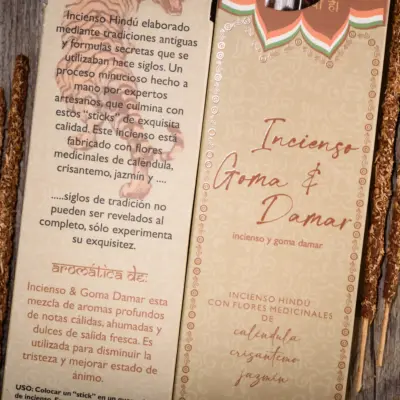 Incienso Hindú elaborado
mediante tradiciones antiguas
y formulas secretas que se
utilizaban hace siglos. Un
proceso minucioso hecho a
mano por expertos
artesanos, que culmina con
estos "sticks" de exquisita
calidad. Este incienso está
fabricado con flores
medicinales de calendula,
crisantemo, jazmín y ....
.....siglos de tradición no
pueden ser revelados al
completo, sólo experimenta
su exquisitez.
aromática de:
Incienso & Goma Damar esta
mezcla de aromas profundos
de notas cálidas, ahumadas y
dulces de salida fresca. Es
utilizada para disminuir la
tristeza y mejorar estado de
ánimo.
USO: Colocar un "stick" en un
Incienso
Goma &
Damar
incienso y goma damar
INCIENSO HINDÚ
CON FLORES MEDICINALES
DE
caléndula
crisantemo
jazmín